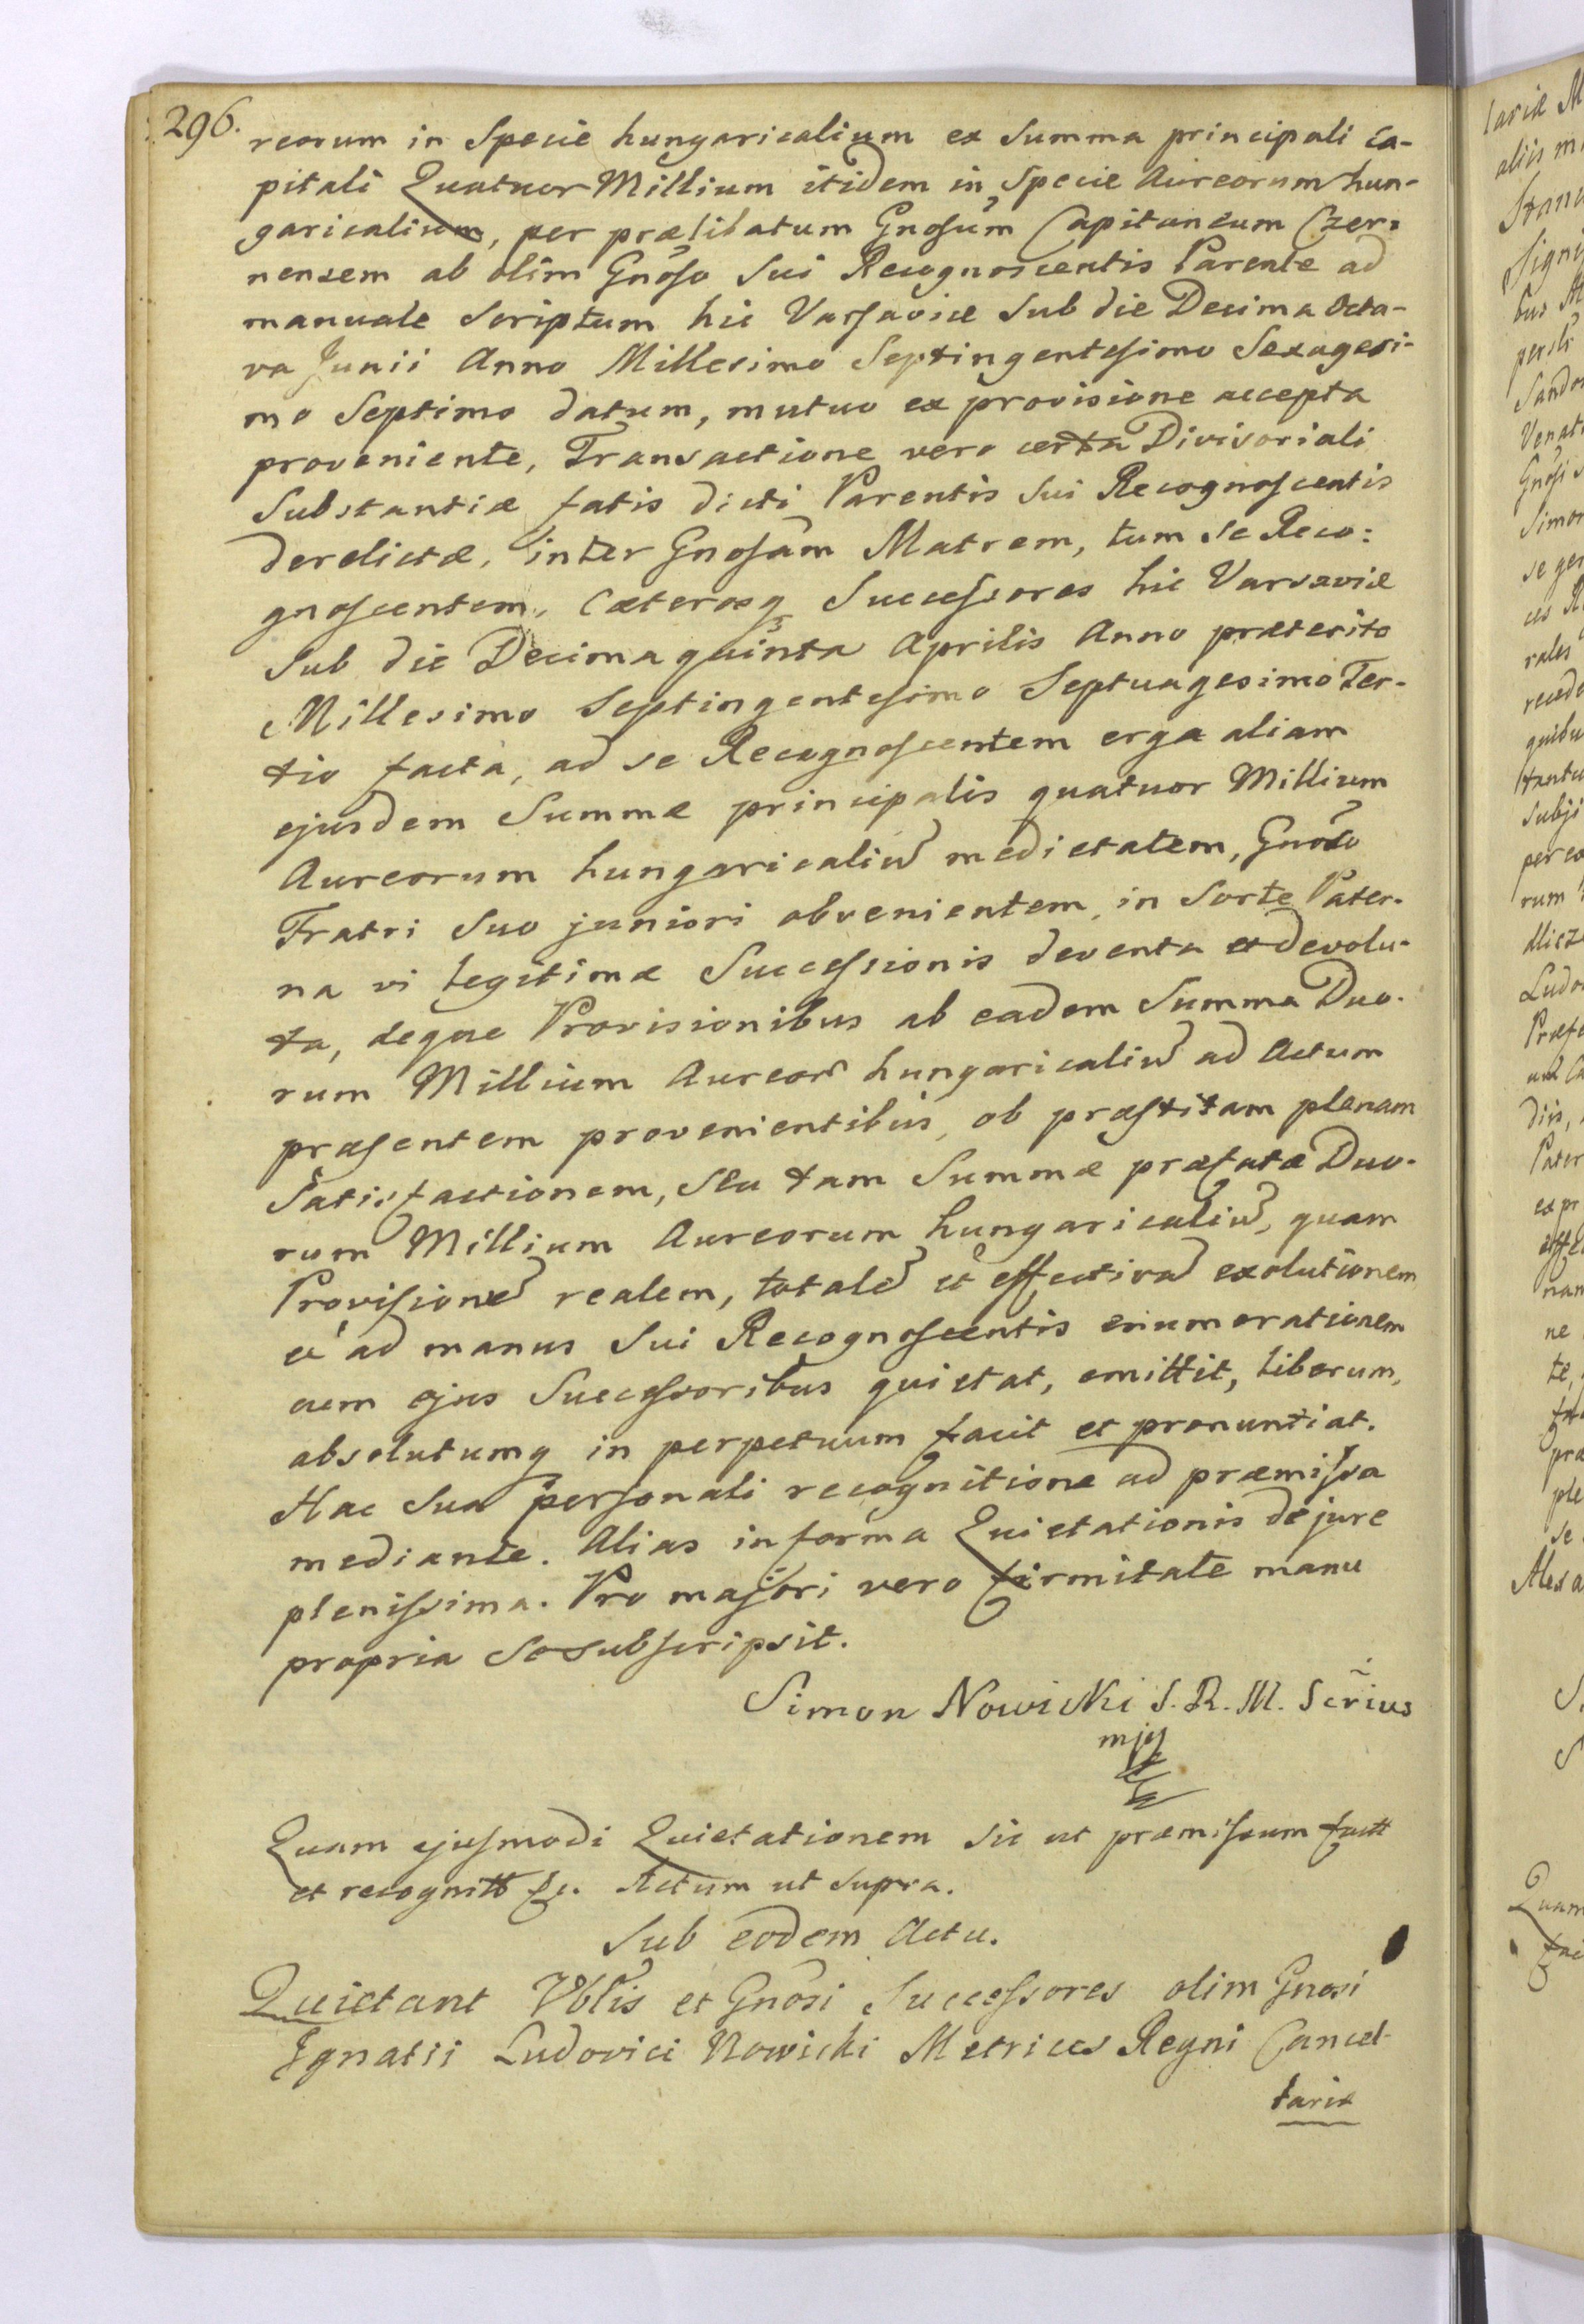 296.
reorum in Specie hungaricalium ex Summa principali ca-
pitali Quatuor Millium itidem in Specie Aureorum hun-
garicalium, per prælibatum Gnosum Capitaneum Czer-
nensem ab olim Gnoso Sui Recognoscentis Parente ad
manuale Scriptum hic Varsaviæ Sub die Decima Octa-
va Junii Anno Millesimo Septingentesimo Sexagesi-
mo Septimo datum, mutuo ex provisione accepta
proveniente, Transactione vero certa Divisoriali
Substantiæ fatis dicti Parentis Sui Recognoscentis
derelictæ, inter Gnosam Matrem, tum se Reco:
gnoscentem, Cæterosq Successores hic Varsaviæ
Sub die Decima quinta Aprilis Anno præterito
Millesimo Septingentesimo Septuagesimo Ter-
tio facta, ad se Recognoscentem erga aliam
ejusdem Summæ principalis quatuor Millium
Aureorum hungaricaliū medietatem, Gnoso
Fratri Suo juniori obvenientem, in Sorte Pater-
na vi legitimæ Successionis deventa et devolu-
ta, deque Provisionibus ab eadem Summa Duo-
rum Millium Aureor hungaricaliū ad Actum
præsentem provenientibus, ob præstitam plenam
Satisfactionem, seu tam Summæ præfatæ Duo-
rum Millium Aureorum hungaricaliū, quam
Provisionū realem, totalē et effectivā exolutionem
et ad manus Sui Recognoscentis enumerationem
eum ejus Successoribus quietat, emittit, liberum,
absolutumq in perpetuum facit et pronuntiat.
Hac Sua personali recognitione ad præmissa
mediante. Alias in forma Quietationis de jure
plenissima. Pro majori vero firmitate manu
propria Se subscripsit.
Simon Nowicki S. R. M. Scrius
mp
Quam ejusmodi Quietationem sic ut præmissum facit
et recognitt &c. Actum ut supra.
Sub eodem Actu.
Quietant Gnosi Successores olim Gnosi
Ignatii Ludovici Nowicki Metrices Regni Cancel-
lariæ